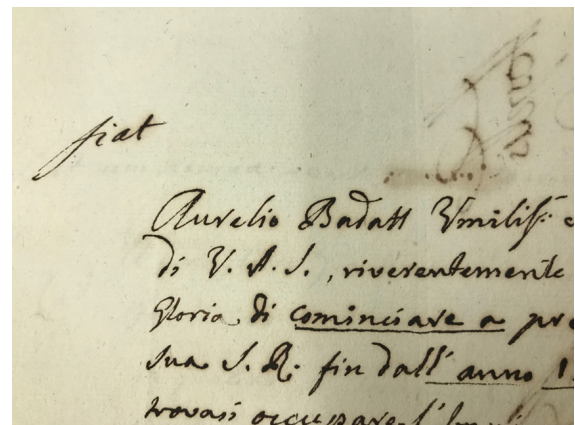 fiat
Aurelio Badatt Ymilis.
di V. A. S., riverentemente
Gloria di cominciare a pre
sua S. R. fin dall' anno 1
trovasi occupare l'